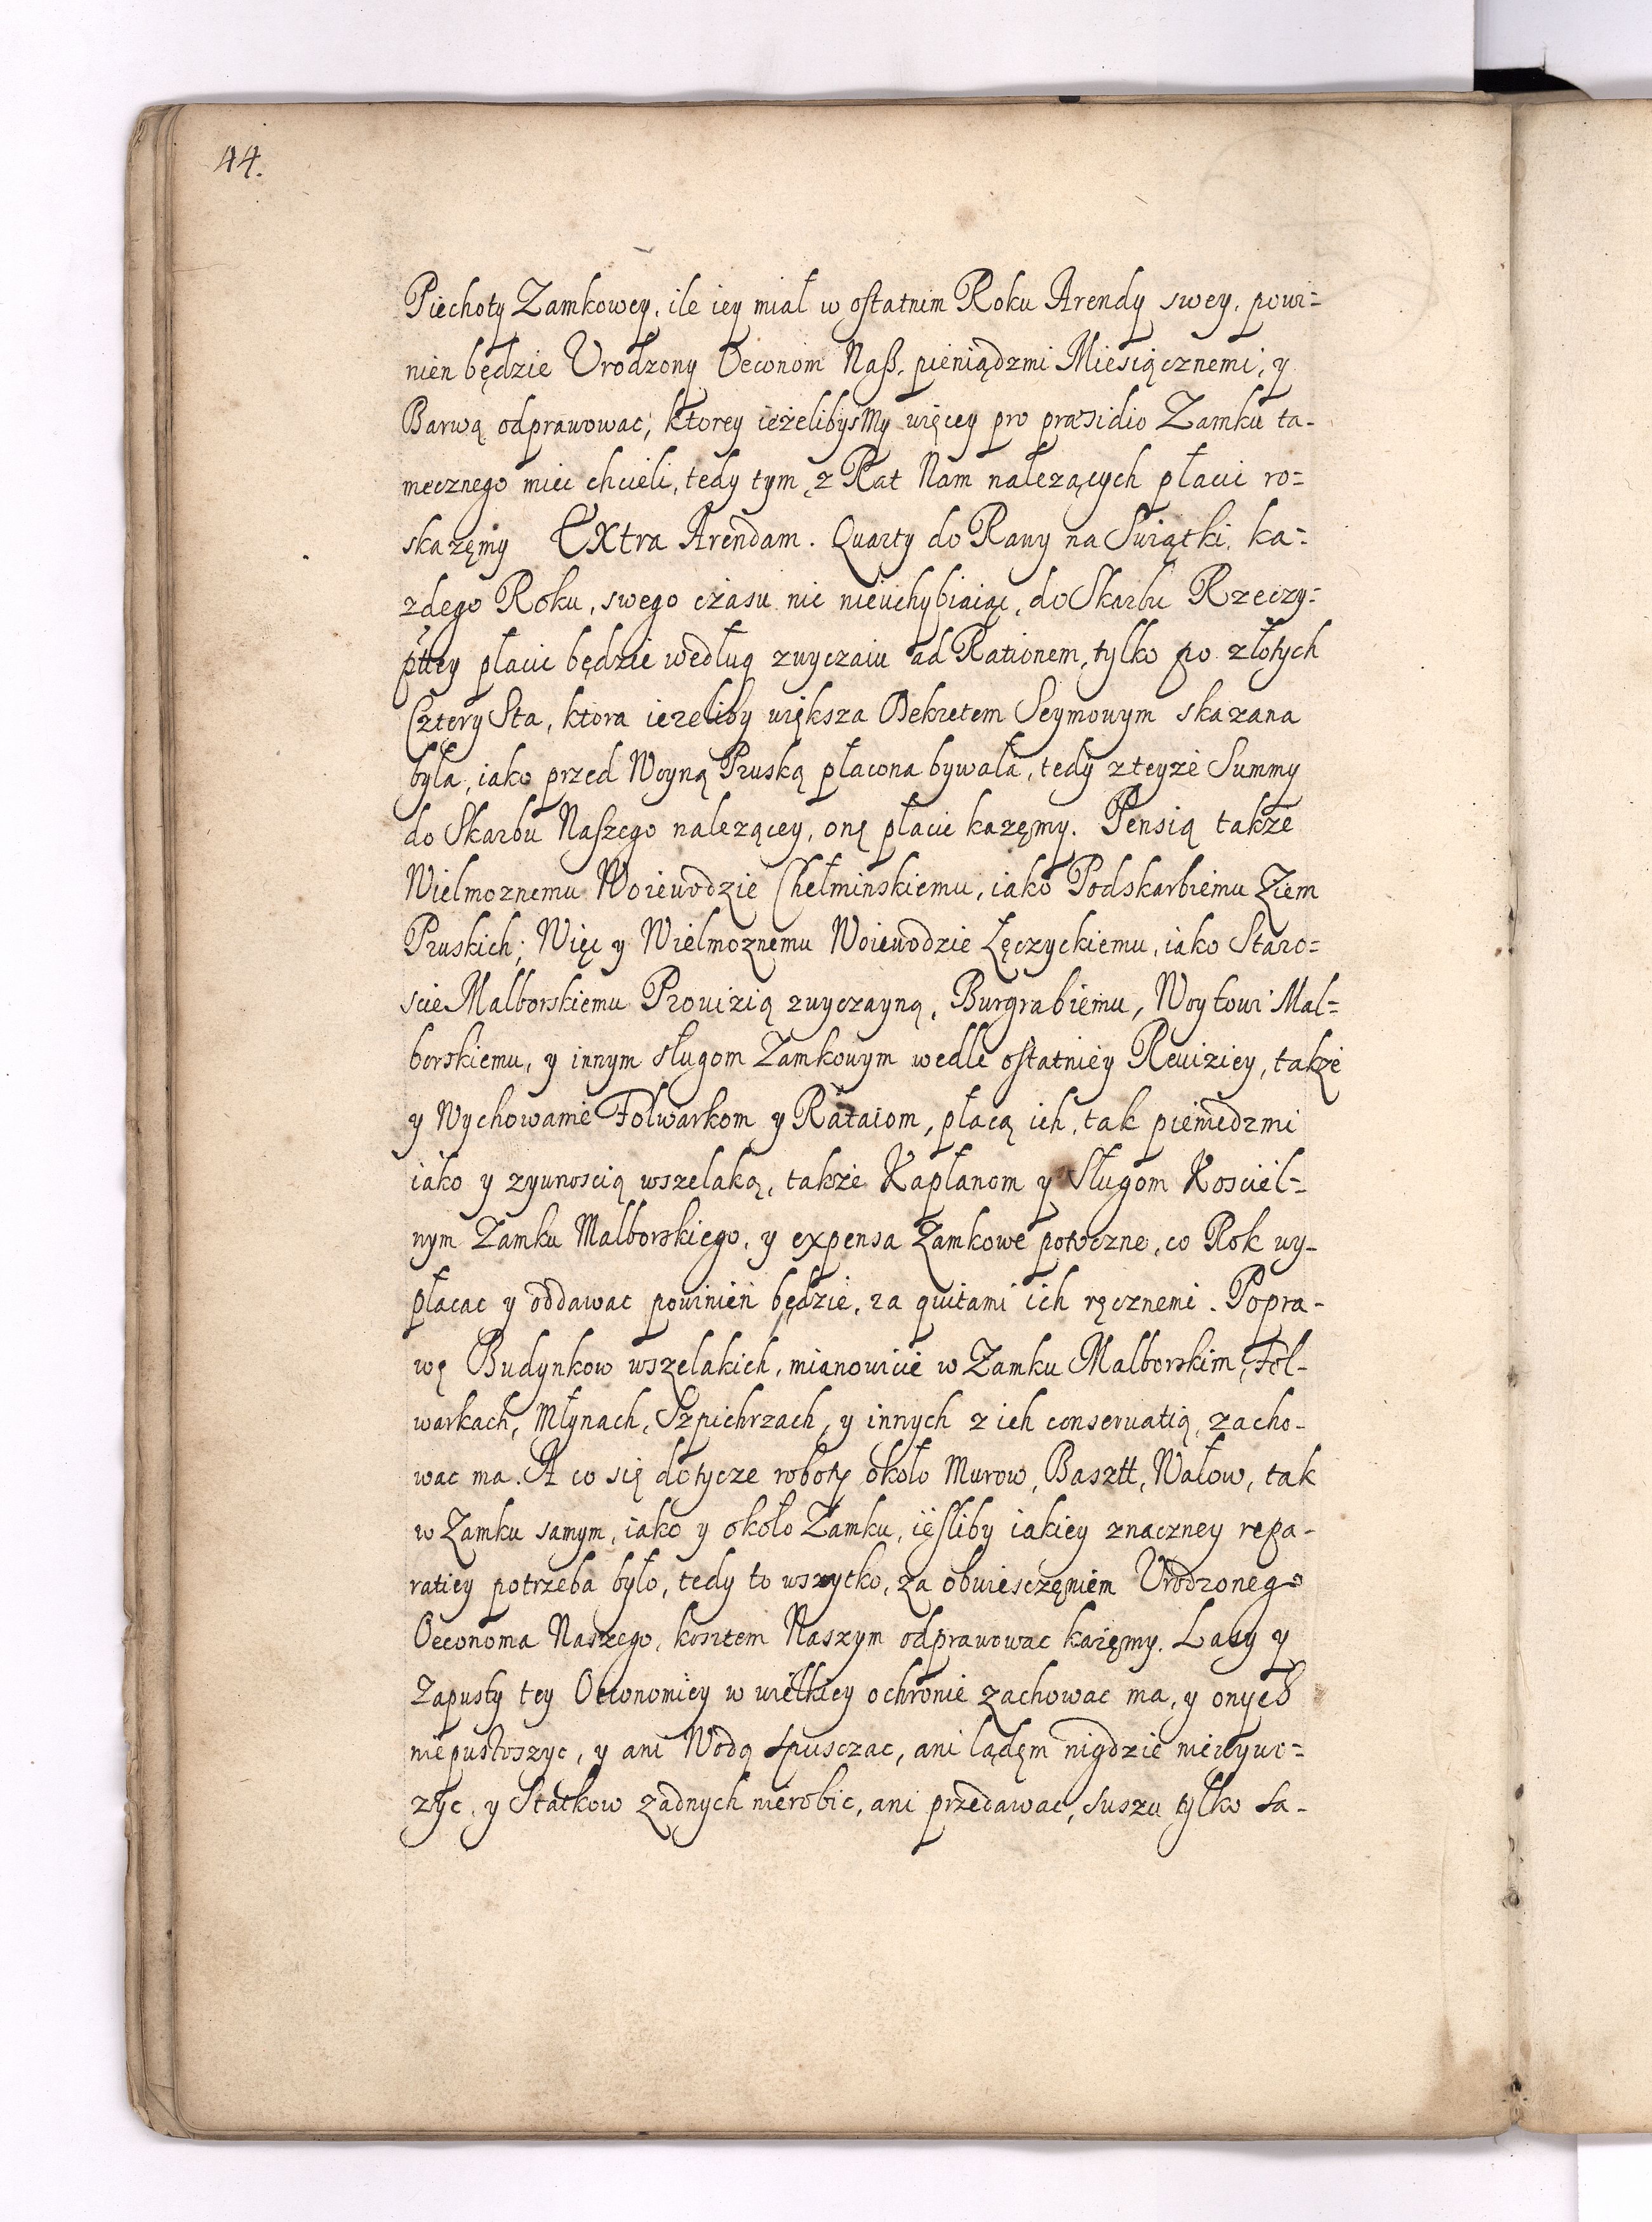 44.
Piechoty Zamkowey, ile iey miał w ostatnim Roku Arendy swey, powi=
nien będzie Vrodzony Oeconom Naß, pieniądzmi Miesiącznemi, y
Barwą odprawowac, ktorey ieżelibysmy więcey pro præsidio Zamku ta-
mecznego miec chcieli, tedy tym z Rat Nam nalezących płacic ro=
skazęmy Extra Arendam. Quarty do Rawy na Swiątki, ka=
zdego Roku, swego czasu nic nieuchybiaiąc, do Skarbu Rzeczy=
pttey płacic będzie według zwyczaiu ad Rationem, tylko po złotych
Cztery Sta, ktora iezeliby większa Dekretem Seymowym skazana
była, iako przed Woyną Pruską płacona bywała, tedy z teyże Summy
do Skarbu Naszego nalezącey, onę płacic kazęmy. Pensią także
Wielmoznemu Woiewodzie Chełminskiemu, iako Podskarbiemu Ziem
Pruskich; Więc y Wielmoznemu Woiewodzie Łęczyckiemu, iako Staro=
scie Malborskiemu Prowizią zwyczayną, Burgrabiemu, Woytowi Mal=
borskiemu, y innym sługom Zamkowym wedle ostatniey Rewiziey, także
y Wychowanie Folwarkom y Rataiom, płacą ich, tak pieniędzmi
iako y zywnoscią wszelaką, także Kapłanom y Sługom Kosciel=
nym Zamku Malborskiego, y expensa Zamkowe potoczne, co Rok wy-
płacac y oddawac powinien będzie, za quitami ich ręcznemi. Popra-
wę Budynkow wszelakich, mianowicie w Zamku Malborskim, Fol-
warkach, Młynach, Szpichrzach, y innych z ich conservatią, zacho-
wac ma. A co się dotycze roboty około Murow, Basztt, Wałow, tak
w Zamku samym, iako y około Zamku, iesliby iakiey znaczney repa-
ratiey potrzeba było, tedy to wszytko, za obwiesczęniem Vrodzonego
Oeconoma Naszego, kosztem Naszym odprawowac każęmy. Lasy y
Zapusty tey Oeconomiey w wielkiey ochronie zachowac ma, y onych
niepustoszyc, y ani Wodą spusczac, ani lądęm nigdzie niewywo=
zyc, y Statkow zadnych nierobic, ani przedawac, suszu tylko sa-